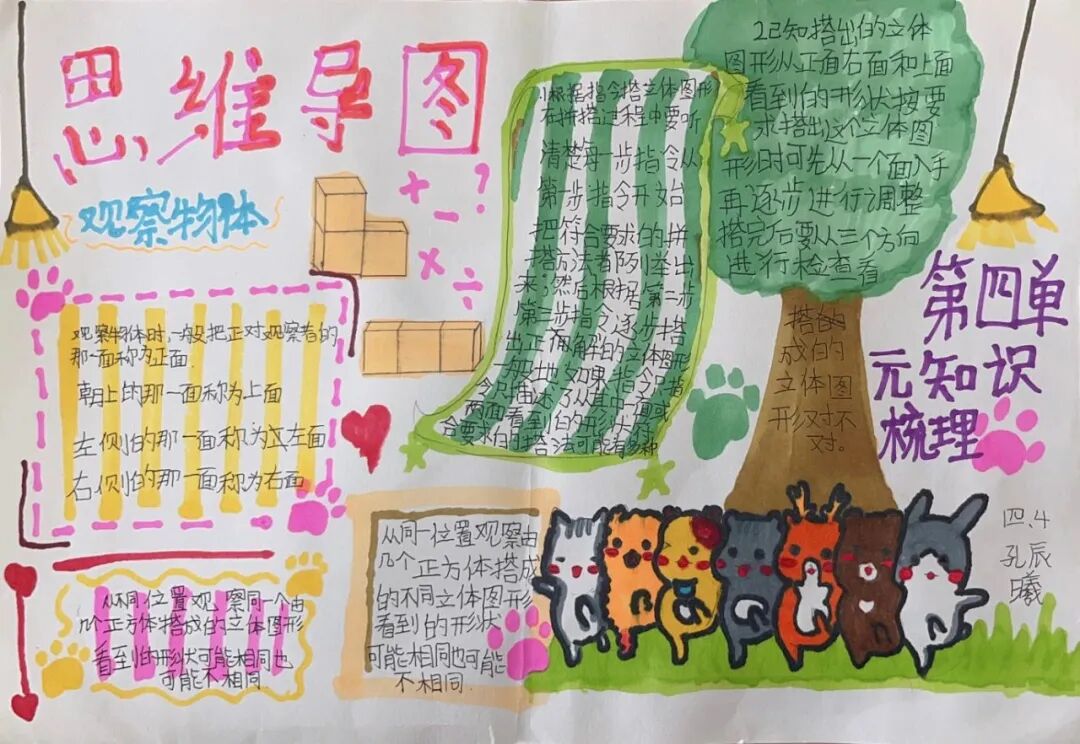 思维导图
观察物体
+ - ?
× ÷
观察物体时,一般把正对观察者的
那一面称为正面.
朝上的那一面称为上面
左侧的那一面称为左面
右侧的那一面称为右面
从不同位置观察同一个由
几个正方体搭成的立体图形
看到的形状可能相同也
可能不相同
1、根据指令搭立体图形
在拼搭过程中要听
清楚每一步指令从
第一步指令开始
把符合要求的拼
搭方法都列举出
来,然后根据第二步
第三步指令逐步搭
出正确的立体图形
如果指令只
描述了从其中一面或
两面看到的形状,
合要求的搭法可能有多种
从同一位置观察由
几个正方体搭成
的不同立体图形
看到的形状
可能相同也可能
不相同.
2已知搭出的立体
图形从正面右面和上面
看到的形状按要
求搭出这个立体图
形时可先从一个面入手
再逐步进行调整
搭完后要从三个方向
进行检查看
搭的
成的
立体图
形对不
对。
第四单
元知识
梳理
四、4
孔辰
曦